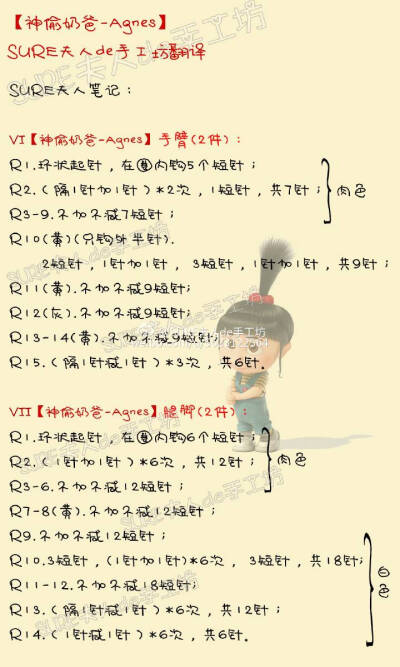 【神偷奶爸-Agnes】
SURE夫人de手工坊翻译
SURE夫人笔记：
VI【神偷奶爸-Agnes】手臂(2件)：
R1.环状起针，在圈内钩5个短针；
R2.(隔1针加1针)*2次，1短针，共7针；
R3-9.不加不减7短针；
肉色
R10(黄)(只钩外半针).
2短针，1针加1针，3短针，1针加1针，共9针；
R11(黄).不加不减9短针;
R12(灰).不加不减9短针;
R13-14(黄).不加不减9短针;
R15.(隔1针减1针)*3次，共6针.
VII【神偷奶爸-Agnes】腿脚(2件)：
R1.环状起针，在圈内钩6个短针；
R2.(1针加1针)*6次，共12针；
R3-6.不加不减12短针；
肉色
R7-8(黄).不加不减12短针；
R9.不加不减12短针；
R10.3短针，(1针加1针)*6次，3短针，共18针；
R11-12.不加不减18短针；
R13.(隔1针减1针)*6次，共12针；
R14.(1针减1针)*6次，共6针.
白色
SURE夫人de手工坊